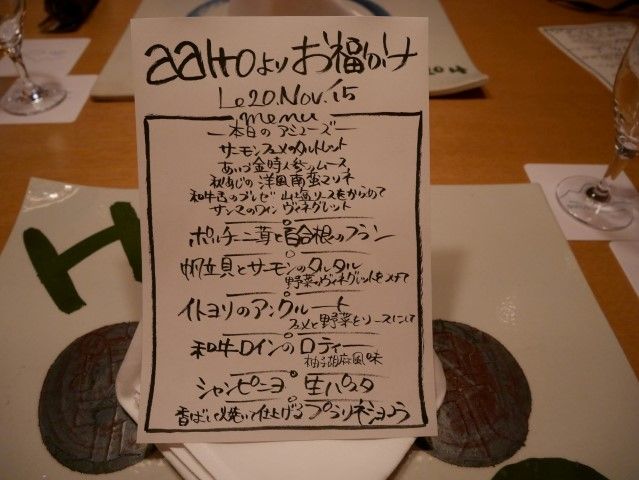 aaltoよりお福分け
Le 20. Nov. 15
menu
本日のアミューズ
サーモンフュメのタルトレット
あいづ金時人参のムース
秋あじの洋風南蛮マリネ
和牛舌のブレゼ 山塩ソースをからめて
サンマのワインヴィネグレット
ポルチーニ茸と百合根のフラン
帆立貝とサーモンのタルタル
野菜のヴィネグレットをそえて
イトヨリのアンクルート
フュメと野菜をソースにして
和牛ロインのロティー
柚子胡麻風味
シャンピニヨン 生パスタ
香ばしい焼いて仕上げる プラリネショコラ